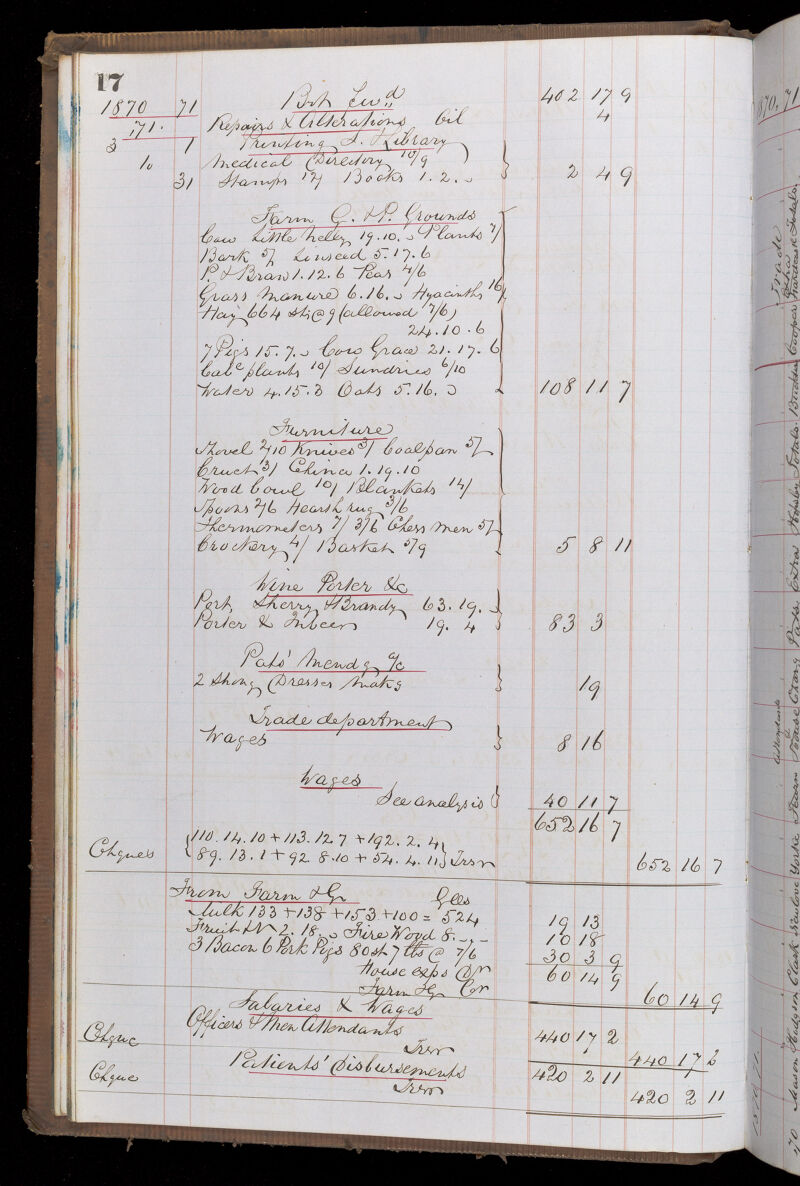 17
1870 71 Brt Fwd 402 17 9
171. Repairs & Alterations Oil 4
3 1 Printing S. & Library
10 Medical Directory 10/9
31 Stamps 12/ Books 1.2.- 2 4 9
Farm G. & P. Grounds
Cow Little Kelly 19.10.- Plants 7/
Bark 5/ Linseed 5.17.6
P. & Bran 1.12.6 Peas 4/6
Grass Manure 6.16.- Hyacinths 16/
Hay 664 sts @ 9 (allowed 7/6)
24.10.6
7 Pigs 15.7.- Cow Grace 21.17.6
Cabe plants 10/ Sundries 6/10
Water 4.15.3 Oats 5.16.3 108 11 7
Furniture
Shovel 2/10 Knives 3/ Coalpan 5/
Cruet 3/ China 1.19.10
Wood bowl 10/ Blankets 14/
Spoons 2/6 Hearth rug 3/6
Thermometers 7/ 3/6 Chess men 5/
Crockery 4/ Basket 5/9 5 8 11
Wine Porter &c
Port, Sherry & Brandy 63.19.-
Porter & 19.4 83 3
Pats' Mendg a/c
2 Strong Dresses Makg 19
Trade department
Wages 8 16
Wages
See analysis 40 11 7
652 16 7
Chques 110.14.10 + 113.12.7 + 192.2.4
89.13.1 + 92.8.10 + 54.4.11 Trsr 652 16 7
From Farm & G Glls
Milk 133 + 138 + 153 + 100 = 524 19 13
Fruit & V 2.18.- Fire Wood 8.-.- 10 18
3 Bacon 6 Pork Pigs 80 st 7 lbs @ 7/6 30 3 9
House exps Dr 60 14 9
Farm & G Cr 60 14 9
Salaries & Wages
Officers & Men Attendants 440 17 2
Chque Trsr 440 17 2
Patients' Disbursements 420 2 11
Chque Trsr 420 2 11
1870. 71
Trade